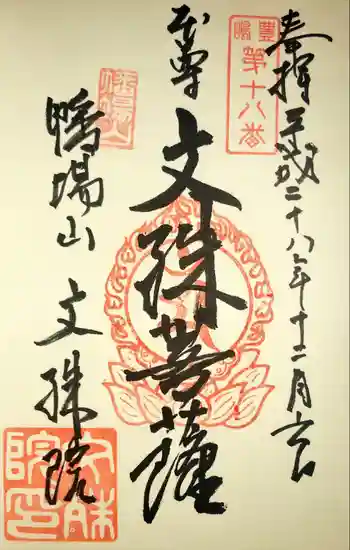 奉拝 平成二十八年十二月六日
豊嶋
第十八番
本尊
文殊菩薩
鴨場山 文殊院
文殊院印